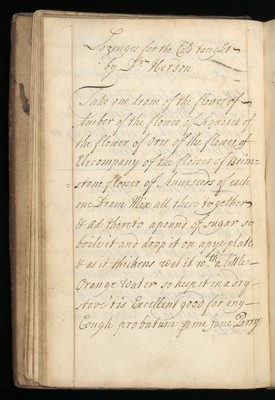 Lozenges for the Coβ taught
by Dr. Herdon
Take one dram of the flower of
Amber of the flower of Liquoris of
the flower of Oris of the flower of
Elecompany of the flower of Brim=
=stone flower of Anneseeds of each
one Dram Mix all these together
& ad thereto a pound of sugar so
boile it and drop it on a pye plate
& as it thickens wet it wth a little
Orange water so keep it in a dry
stove tis Excellent good for any
Cough probatum p me Jane Parry